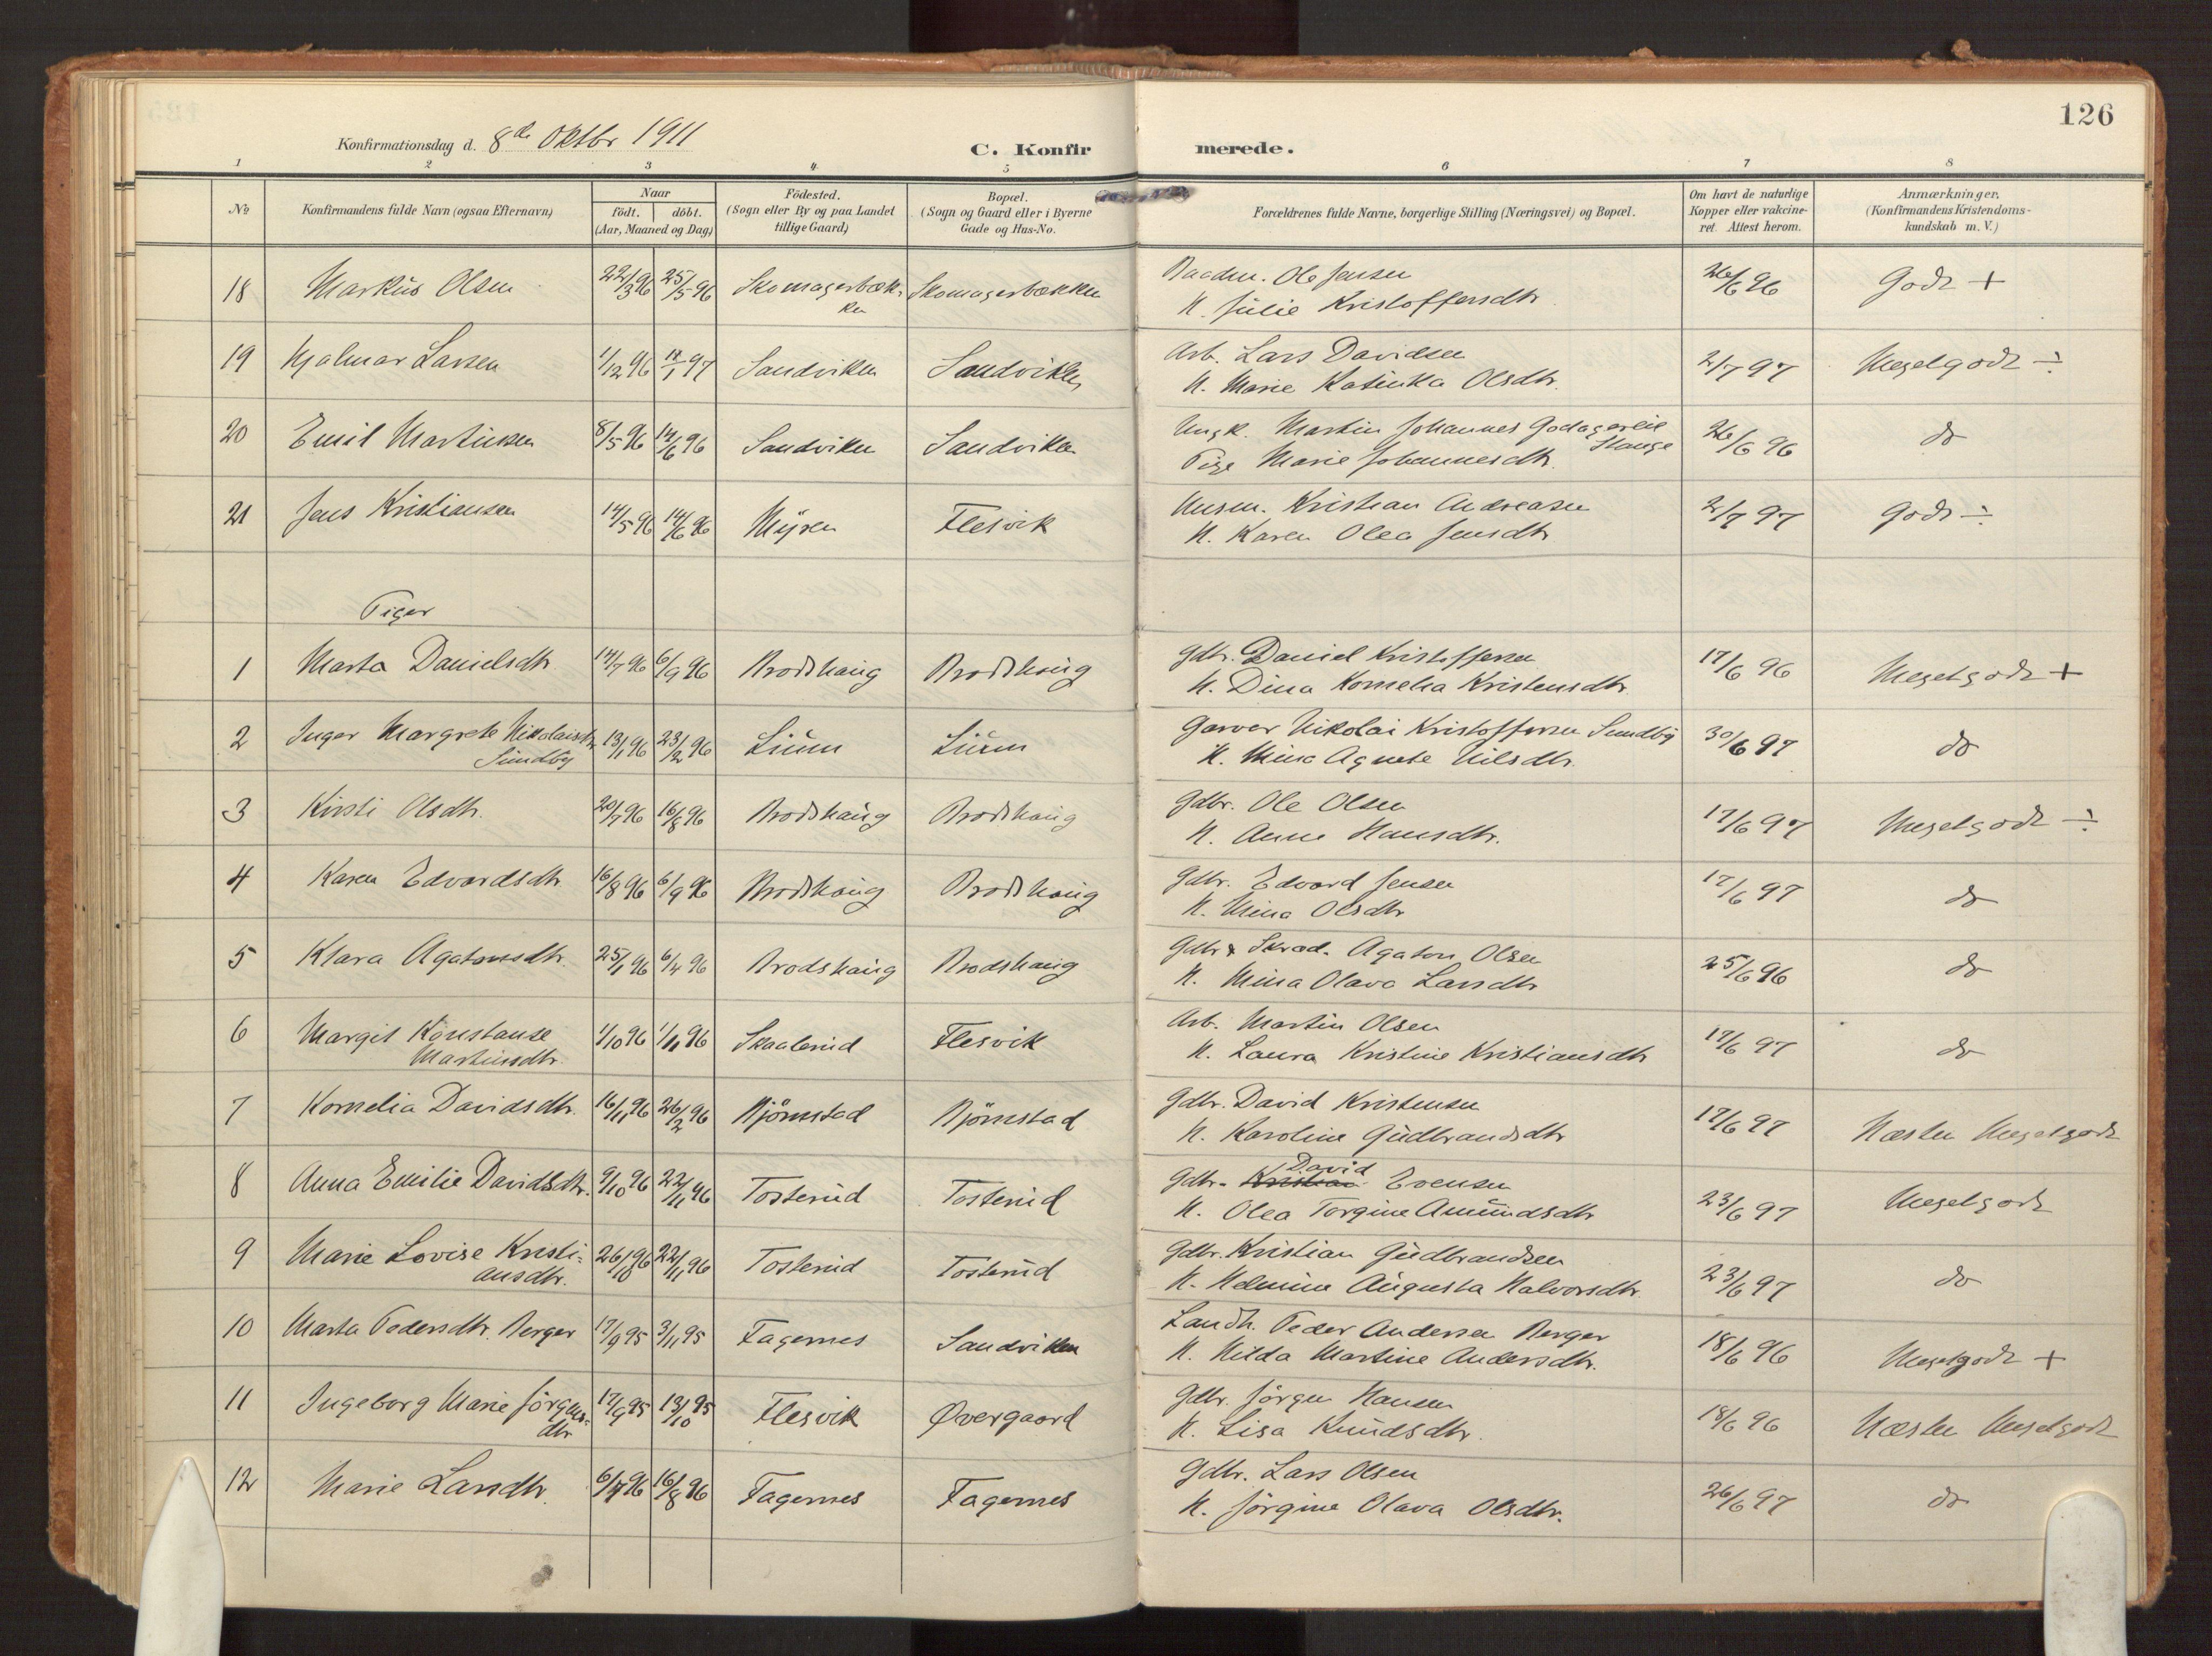 126
Konfirmationsdag d. 8de Oktbr 1911
C. Konfirmerede.
1 2 3 4 5 6 7 8
No
Konfirmandens fulde Navn (ogsaa Efternavn)
Naar
födt. döbt.
(Aar, Maaned og Dag)
Födested.
(Sogn eller By og paa Landet
tillige Gaard)
Bopæl.
(Sogn og Gaard eller i Byerne
Gade og Hus-No.
Forældrenes fulde Navne, borgerlige Stilling (Næringsvei) og Bopæl.
Om havt de naturlige
Kopper eller vakcine-
ret. Attest herom.
Anmærkninger.
(Konfirmandens Kristendoms-
kundskab m. V.)
18 Markus Olsen 22/3 96 25/5 96 Skomagerbæk-
ken Skomagerbækken Baadm. Ole Jensen
H. Julie Kristoffersdtr. 26/6 96 Godt +
19 Hjalmar Larsen 1/12 96 17/1 97 Sandviken Sandviken Arb. Lars Davidsen
H. Marie Katinka Olsdtr. 2/7 97 Megetgodt ÷
20 Emil Martinsen 8/5 96 14/6 96 Sandviken Sandviken Ungk. Martin Johannes Godagereie
Stange
Pige Marie Johannesdtr. 26/6 96 do
21 Jens Kristiansen 14/5 96 14/6 96 Myren Flesvik Husm. Kristian Andreasen
H. Karen Olea Jensdtr 2/7 97 Godt ÷
Piger
1 Marta Danielsdtr 14/7 96 6/9 96 Brodshaug Brodshaug Gdbr. Daniel Kristoffersen
H. Dina Kornelia Kristensdtr. 17/6 96 Megetgodt +
2 Inger Margrete Nikolaisdtr
Sundby 13/1 96 23/2 96 Lium Lium Garver Nikolai Kristoffersen Sundby
H. Mina Agnete Nilsdtr. 30/6 97 do
3 Kirsti Olsdtr. 20/7 96 16/8 96 Brodshaug Brodshaug Gdbr. Ole Olsen
H. Anne Hansdtr. 17/6 97 Megetgodt ÷
4 Karen Edvardsdtr 16/8 96 6/9 96 Brodshaug Brodshaug Gdbr. Edvard Jensen
H. Mina Olsdtr 17/6 97 do
5 Klara Agatonsdtr. 25/1 96 6/4 96 Brodshaug Brodshaug Gdbr & Skræd. Agaton Olsen
H. Mina Olava Larsdtr 25/6 96 do
6 Margit Konstanse
Martinsdtr. 1/10 96 1/11 96 Skaalerud Flesvik Arb. Martin Olsen
H. Laura Kristine Kristiansdtr 17/6 97 do
7 Kornelia Davidsdtr. 16/11 96 26/12 96 Björnstad Björnstad Gdbr. David Kristensen
H. Karoline Gudbrandsdtr 17/6 97 Næsten Megetgodt
8 Anna Emilie Davidsdtr. 9/10 96 22/11 96 Tosterud Tosterud David
Gdbr. Kristian Evensen
H. Olea Torgine Amundsdtr 23/6 97 Megetgodt
9 Marie Lovise Kristi-
ansdtr. 26/10 96 22/11 96 Tosterud Tosterud Gdbr. Kristian Gudbrandsen
H. Helmine Augusta Halvorsdtr. 23/6 97 do
10 Marta Pedersdtr. Berger 17/9 95 3/11 95 Fagernes Sandviken Landh. Peder Andersen Berger
H. Hilda Martine Andersdtr. 18/6 96 Megetgodt +
11 Ingeborg Marie Jörgens-
dtr 17/9 95 13/10 95 Flesvik Øvergaard Gdbr. Jörgen Hansen
H. Lisa Knudsdtr. 18/6 96 Næsten Megetgodt
12 Marie Larsdtr. 6/7 96 16/8 96 Fagernes Fagernes Gdbr. Lars Olsen
H. Jörgine Olava Olsdtr. 26/6 97 do